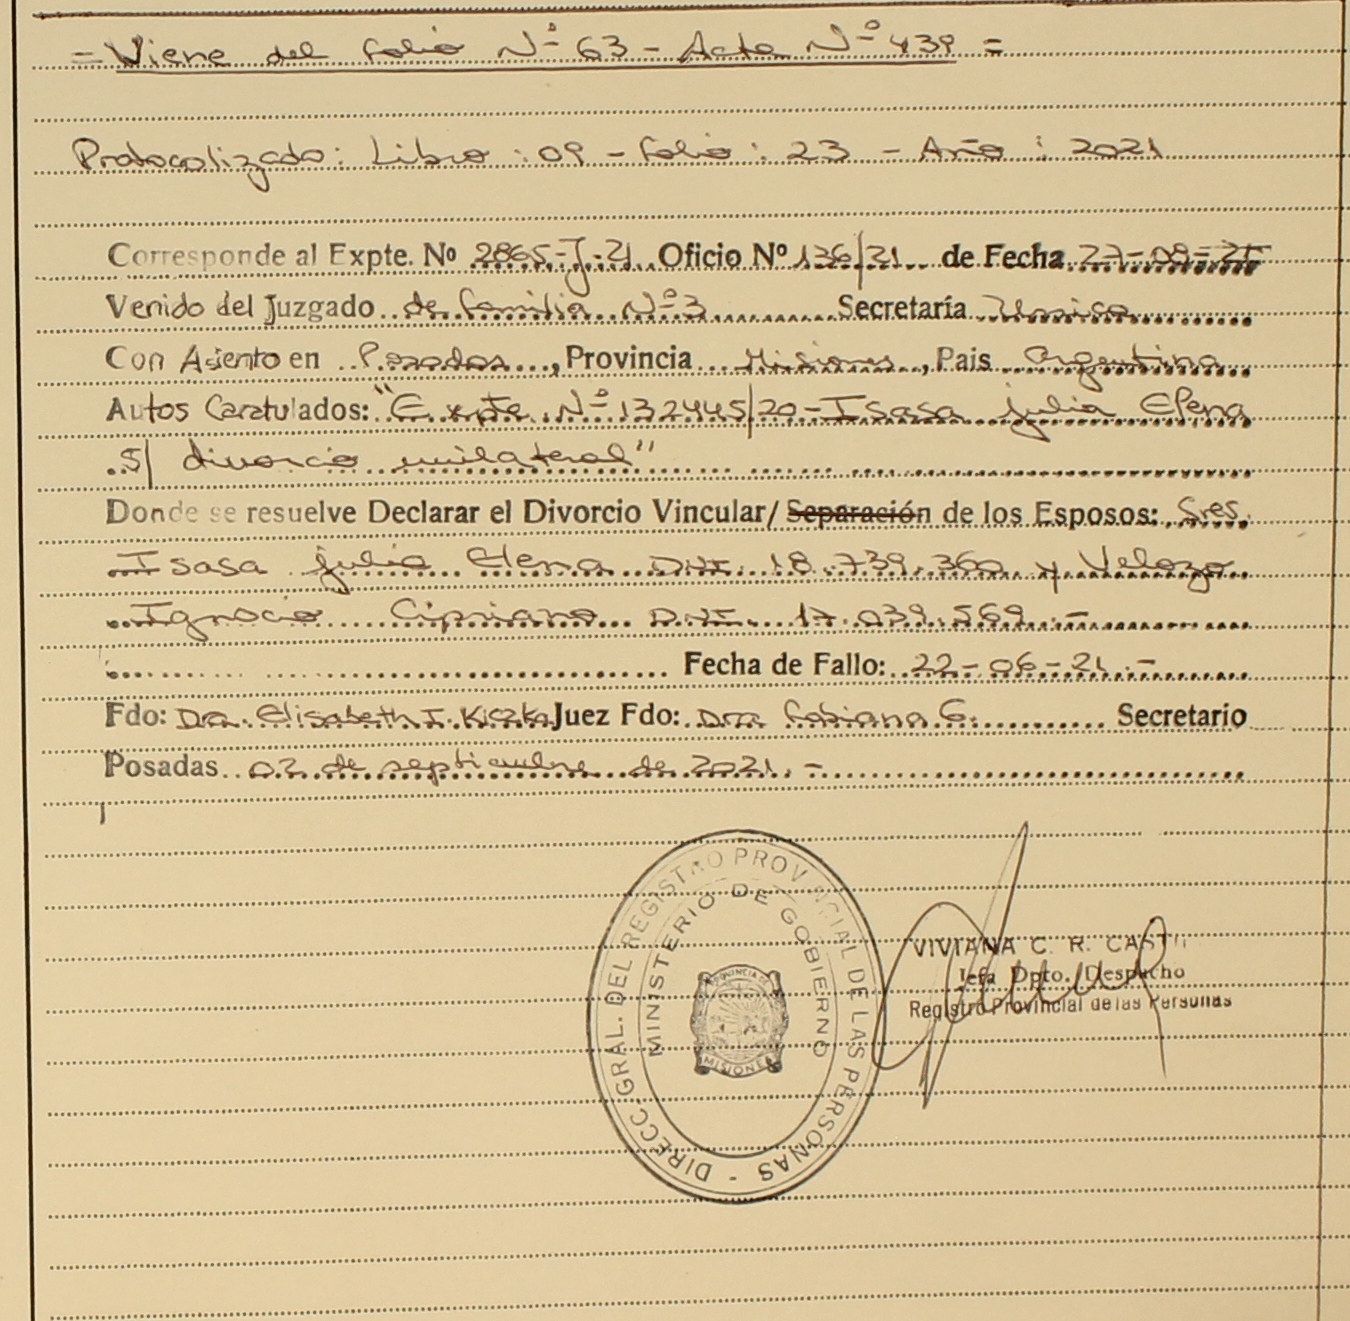 = Viene del folio Nº 63 - Acta Nº 439 =
Protocolizado: Libro: 09 - folio: 23 - Año: 2021
Corresponde al Expte. Nº 2865-J-21 Oficio Nº 136/21 de Fecha 27-08-21
Venido del Juzgado de familia Nº 3 Secretaría Unica
Con Asiento en Posadas, Provincia Misiones, Pais Argentina
Autos Caratulados: "Expte Nº 132445/20 - Isasa julia Elena
S/ divorcio unilateral"
Donde se resuelve Declarar el Divorcio Vincular/ Separación de los Esposos: Sres.
Isasa julia Elena DNI. 18.739.360 y Velozo
Ignacio Cipriano DNI. 17.039.569.-
Fecha de Fallo: 22-06-21.-
Fdo: Dra. Elisabeth I. Juez Fdo: Dra Fabiana G. Secretario
Posadas 02 de septiembre de 2021.-
DIRECC. GRAL. DEL REGISTRO PROVINCIAL DE LAS PERSONAS -
MINISTERIO DE GOBIERNO
PROVINCIA DE
MISIONES
VIVIANA C. R.
Jefa Dpto. Despacho
Registro Provincial de las Personas